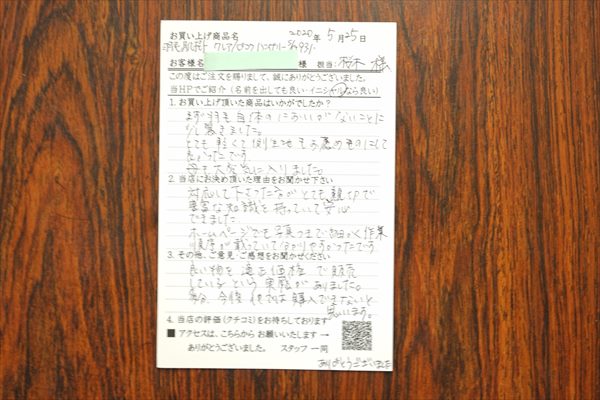 お買い上げ商品名 2020年5月25日
羽毛ふとん
お客様名 様 担当: 様
この度はご注文を賜りまして、誠にありがとうございました。
当HPでご紹介 (名前を出しても良い・イニシャルなら良い)
1. お買い上げ頂いた商品はいかがでしたか?
まず羽毛自体のにおいがないことに
少し驚きました。
とても軽くて側生地もお薦めのものにして
良かったです。
母も大変気に入りました。
2. 当店にお決め頂いた理由をお聞かせ下さい
対応して下さった方がとても親切で
豊富な知識を持っていて安心
できました
ホームページでも写真つきで細かく作業
順序が載っていて分かりやすかったです
3. その他、ご意見・ご感想をお聞かせください
良い物を適正価格で販売
しているという実感がありました。
多分、今後他では購入できないと
思います。
4. 当店の評価(クチコミ)をお待ちしております
■ アクセスは、こちらから お願いいたします →
ありがとうございました。 スタッフ 一同
ありがとうございました